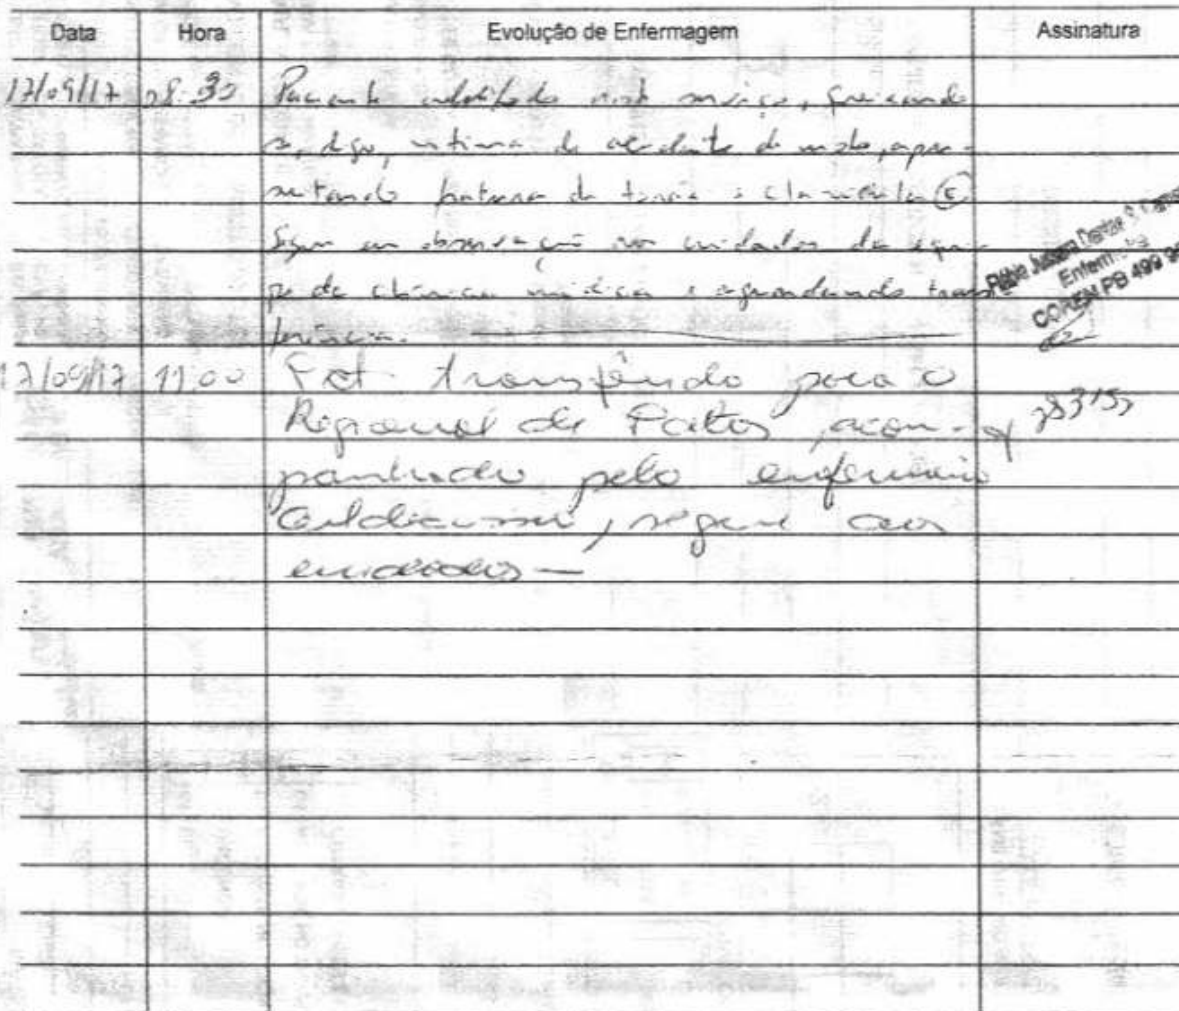 Data Hora Evolução de Enfermagem Assinatura
17/09/17 08:30 Paciente admitido neste serviço,
digo, vítima de acidente de moto, apre-
sentando fratura de e clavícula (E)
Segue em observação aos cuidados da equi-
pe da clínica médica e aguardando trans-
ferência.
Enferm
COREN PB 499 9
17/09/17 11:00 Pct transferido para o
Regional de Patos, acom-
panhado pelo enfermeiro
, segue aos
cuidados —